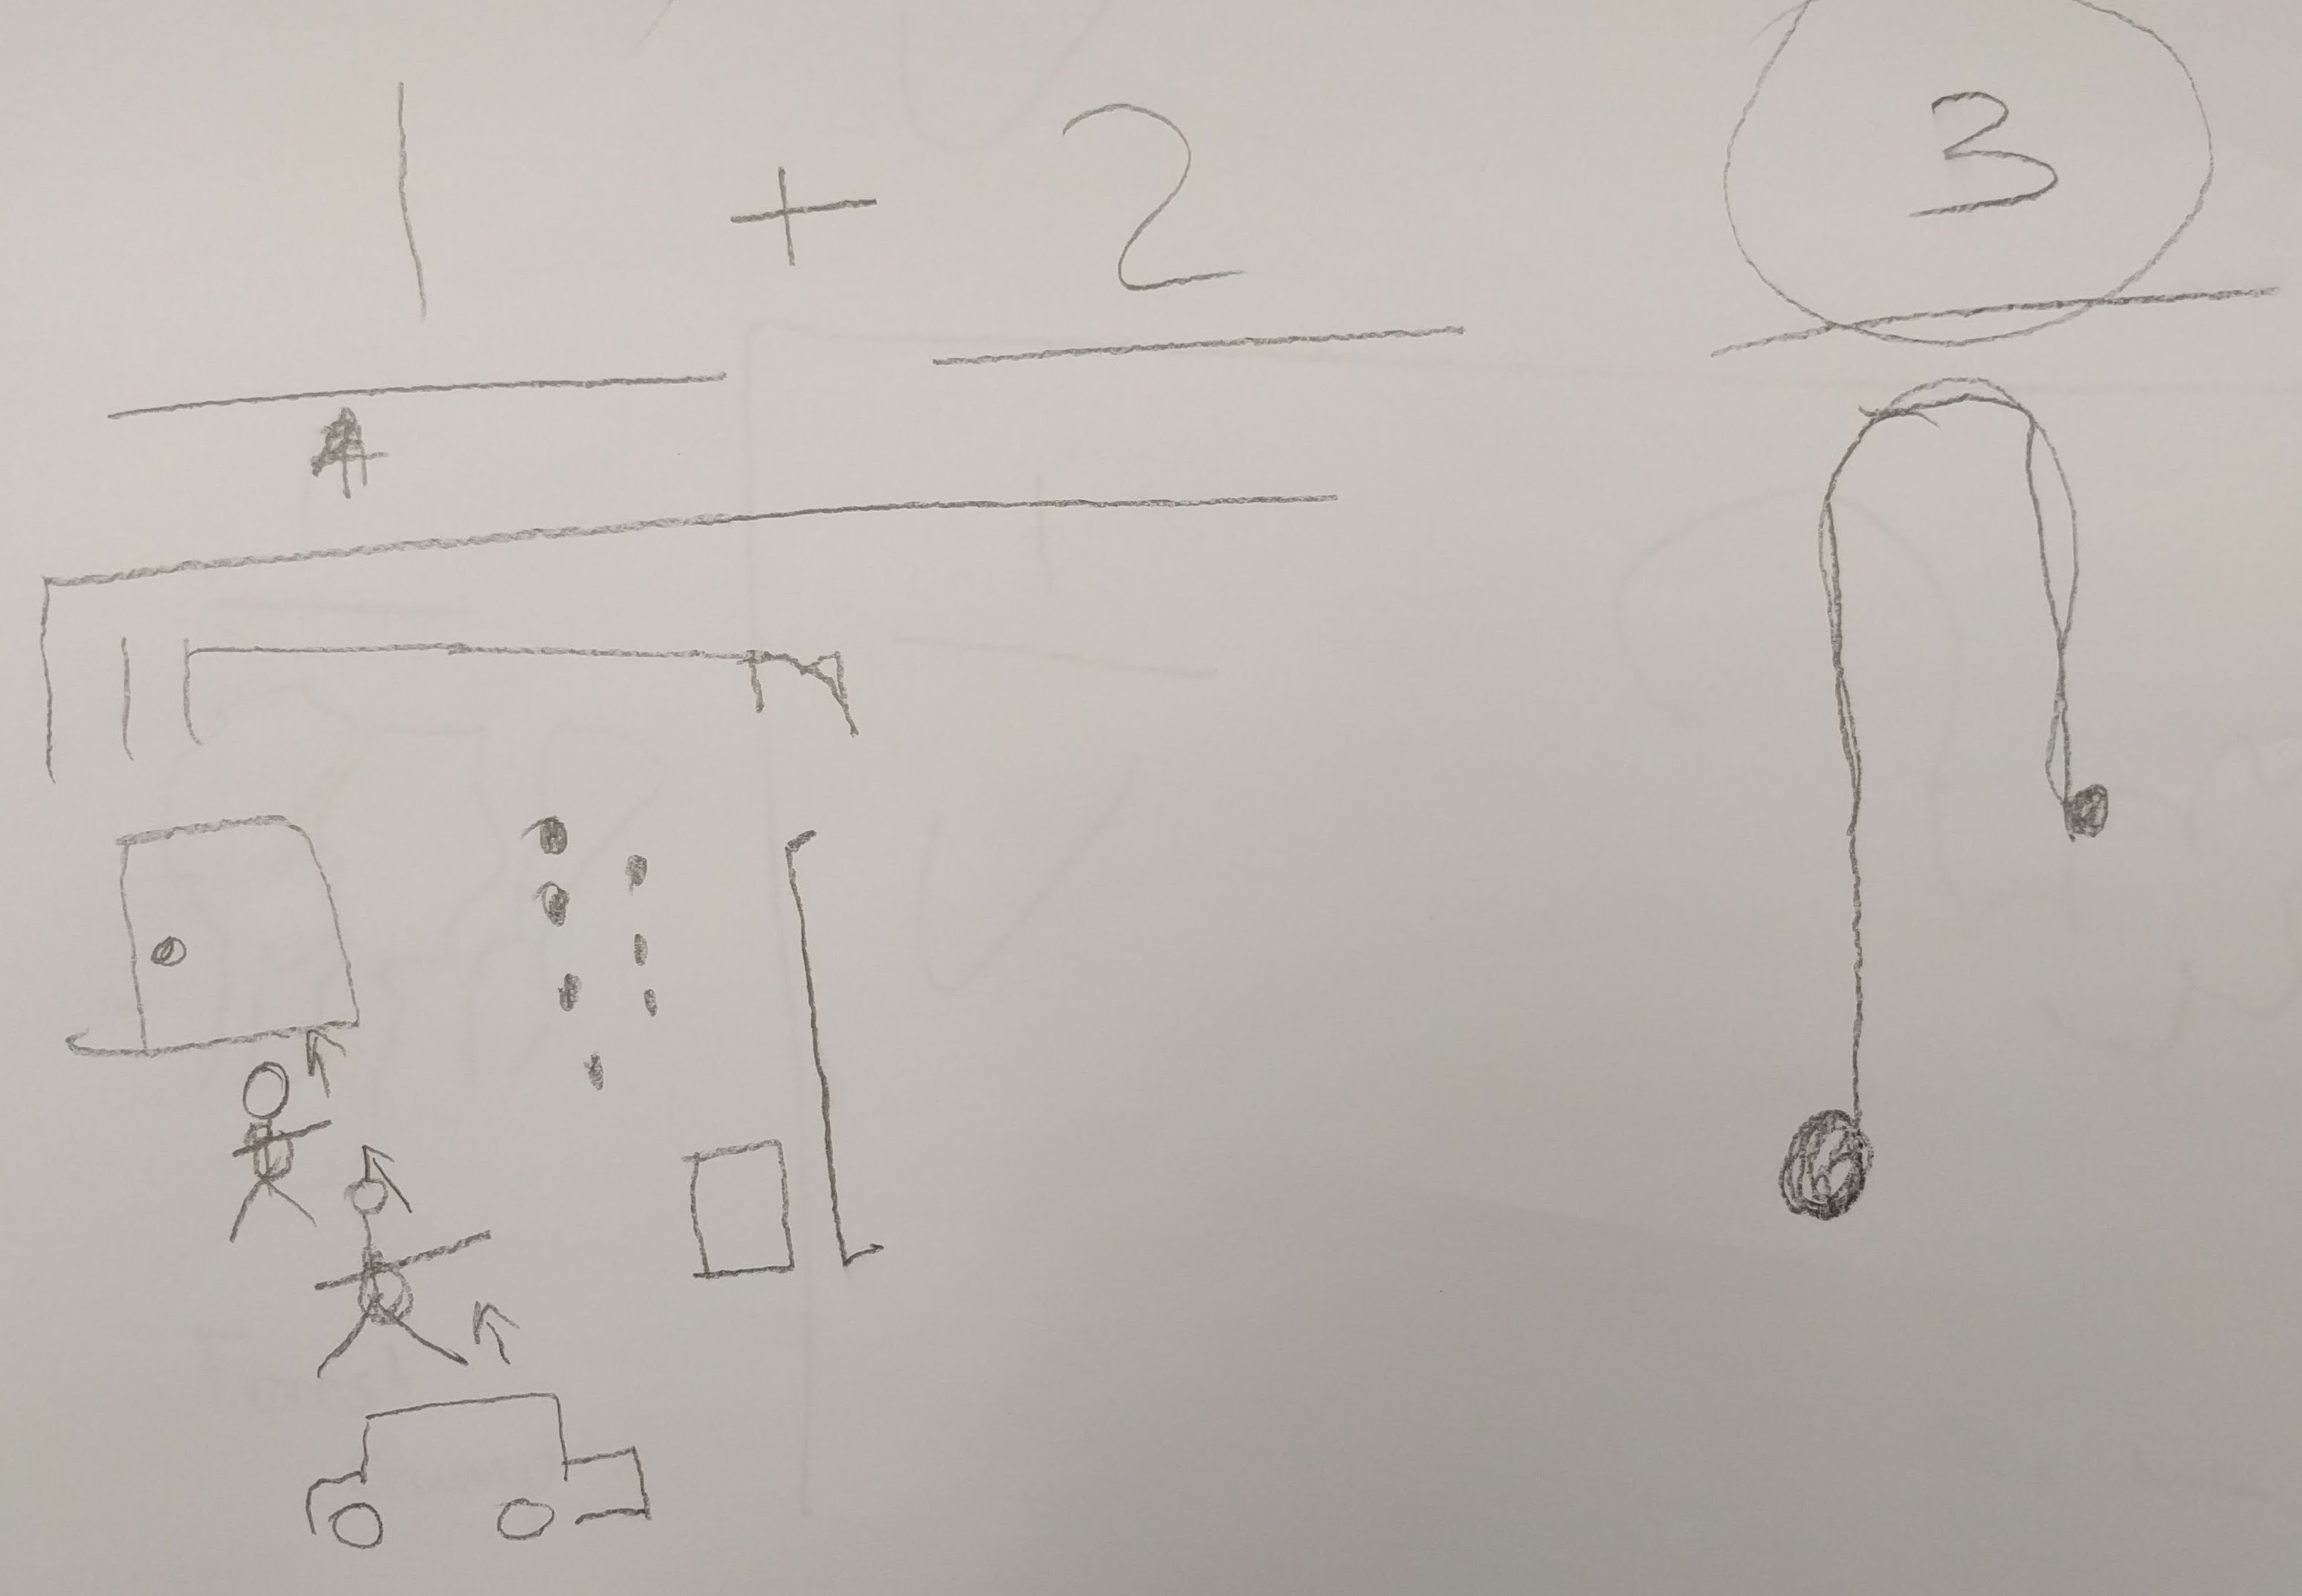 1 + 2 3